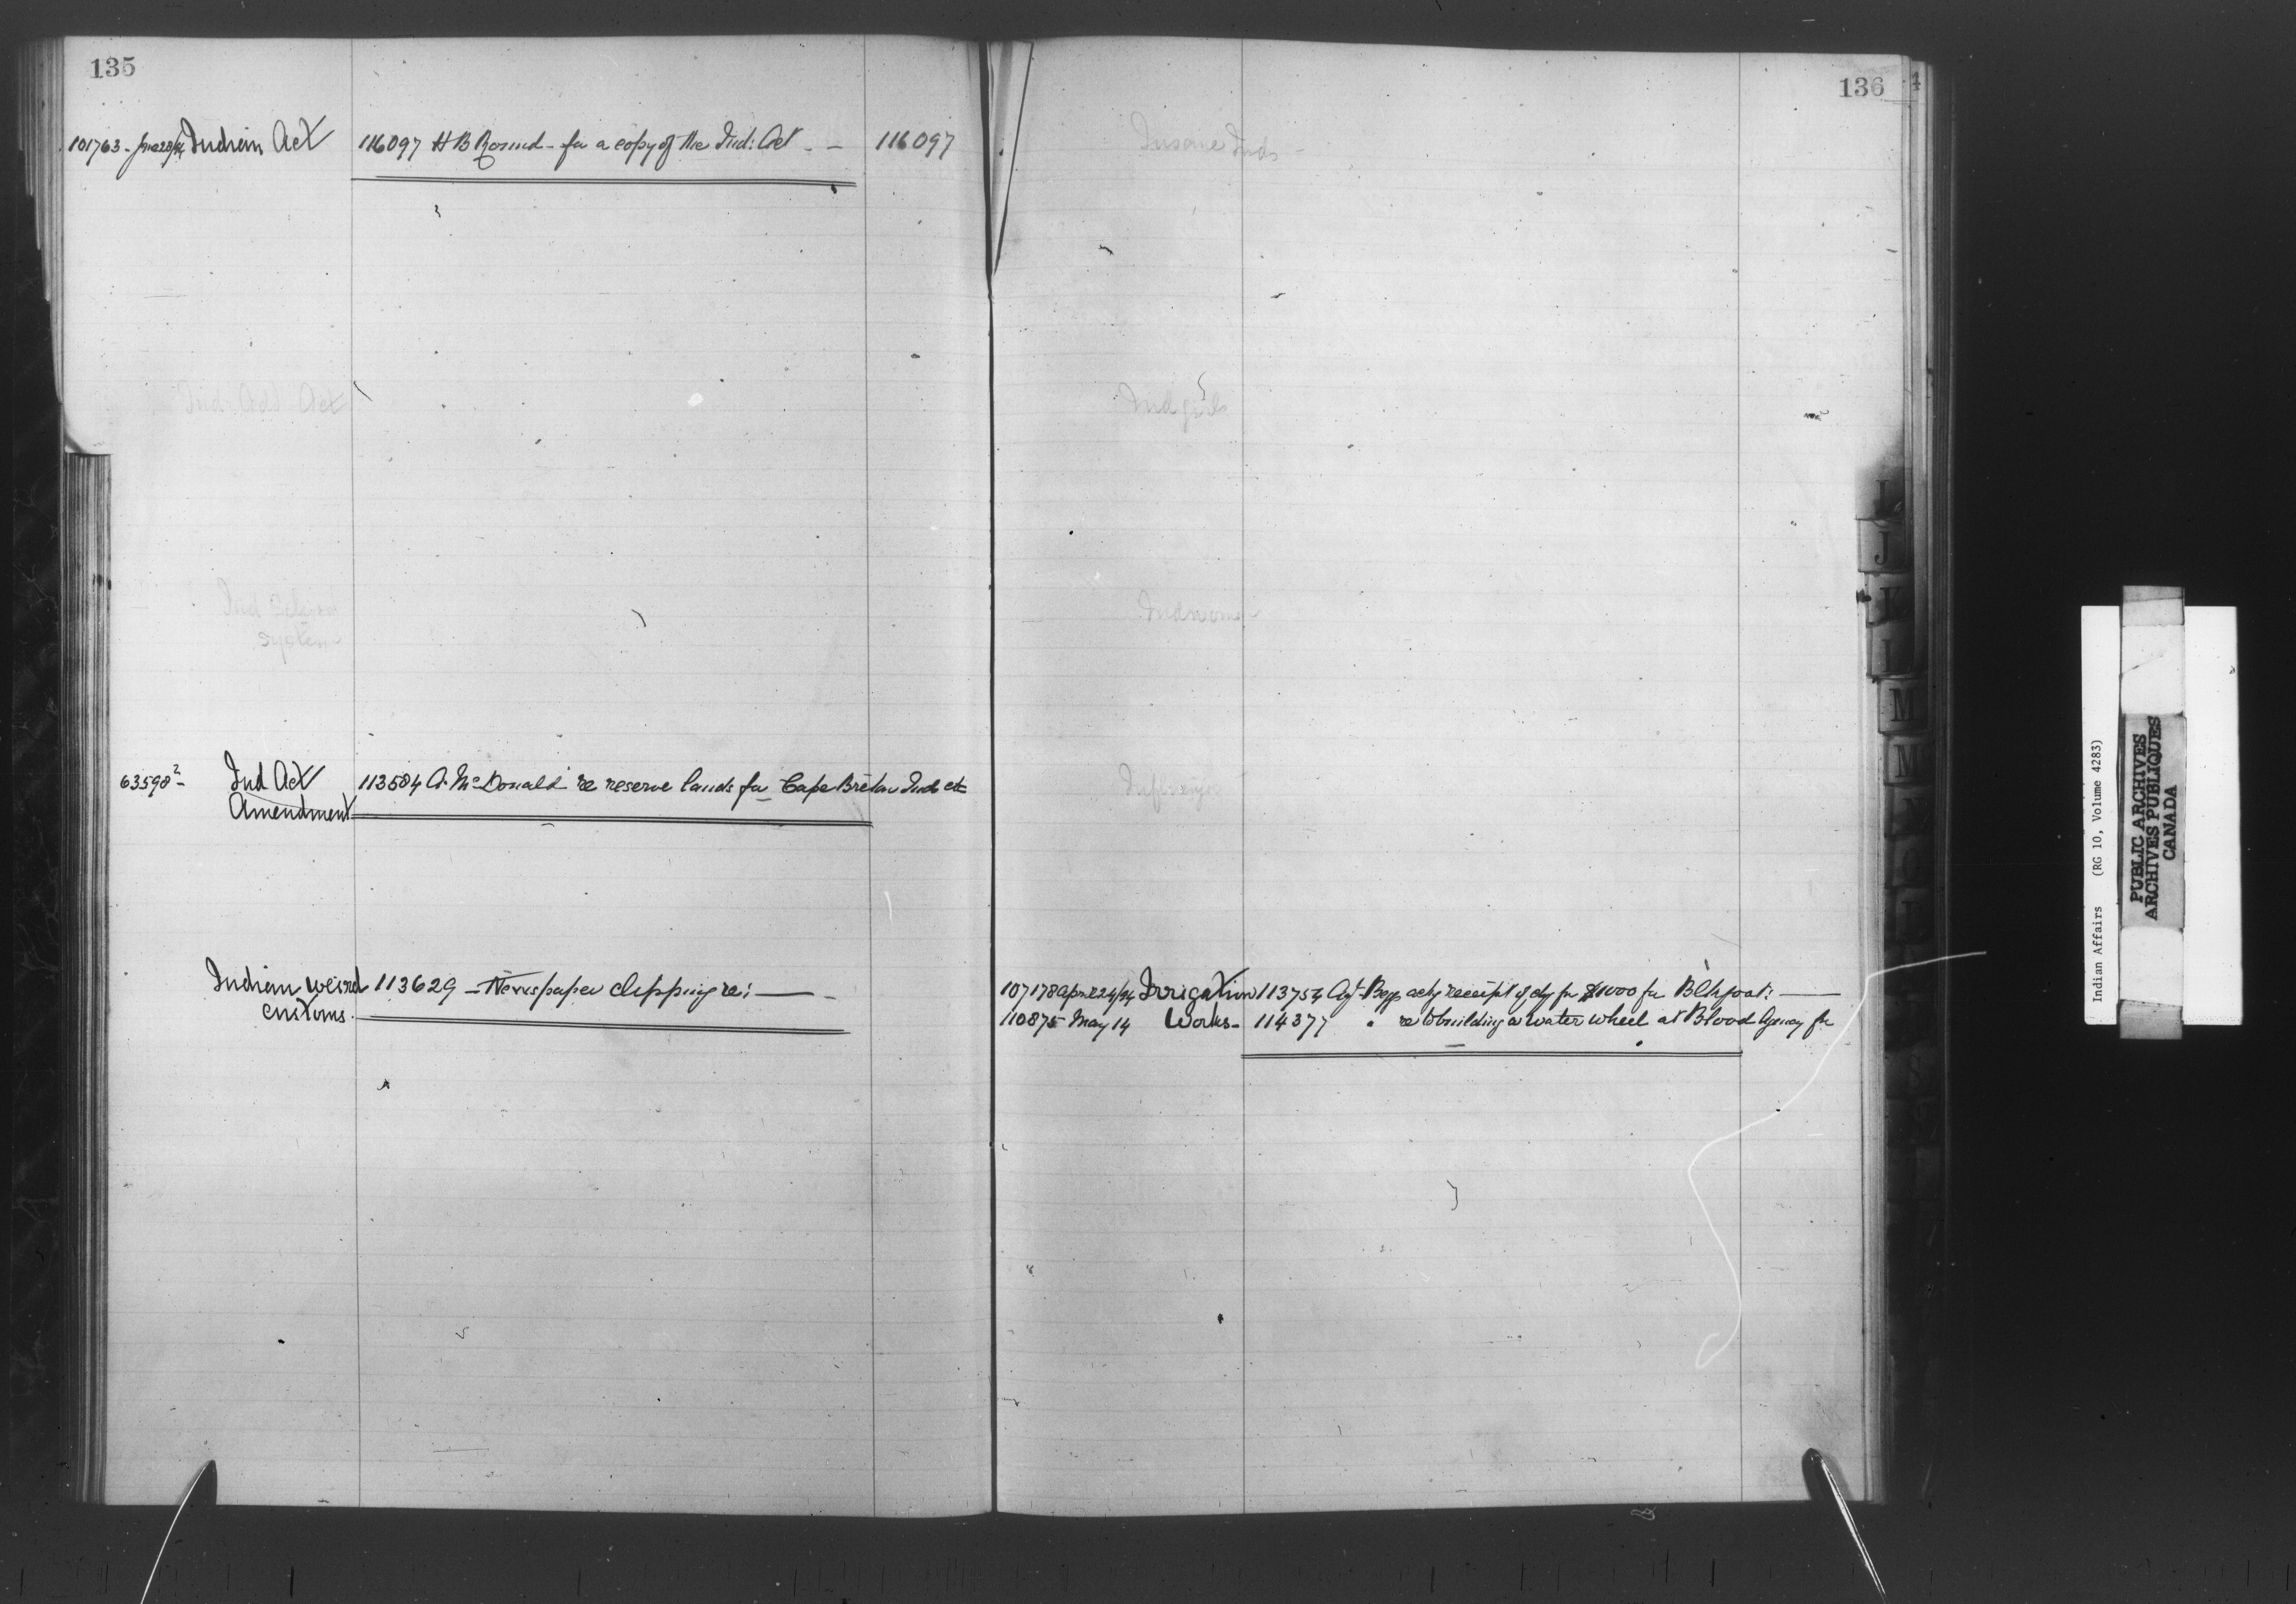 135
101763 - June 28/94 Indian Act 116097 H B Round - for a copy of the Ind: Act - - 116097
Ind. Add Act
Ind School
System
63598² - Ind Act 113584 A. McDonald re reserve lands for Cape Breton Inds etc
Amendment
Indian weird 113629 - Newspaper clipping re: -
customs.
136
Insane Inds -
Ind girls
Ind women
107178 April 24/94 Irrigation 113754 Agt Begg ackg receipt of chq for $1000 for Blkfoot:
110875 May 14 Works - 114377 " re building a water wheel at Blood Agency for
J
K
L
M
M
Indian Affairs (RG 10, Volume 4283)
PUBLIC ARCHIVES
ARCHIVES PUBLIQUES
CANADA